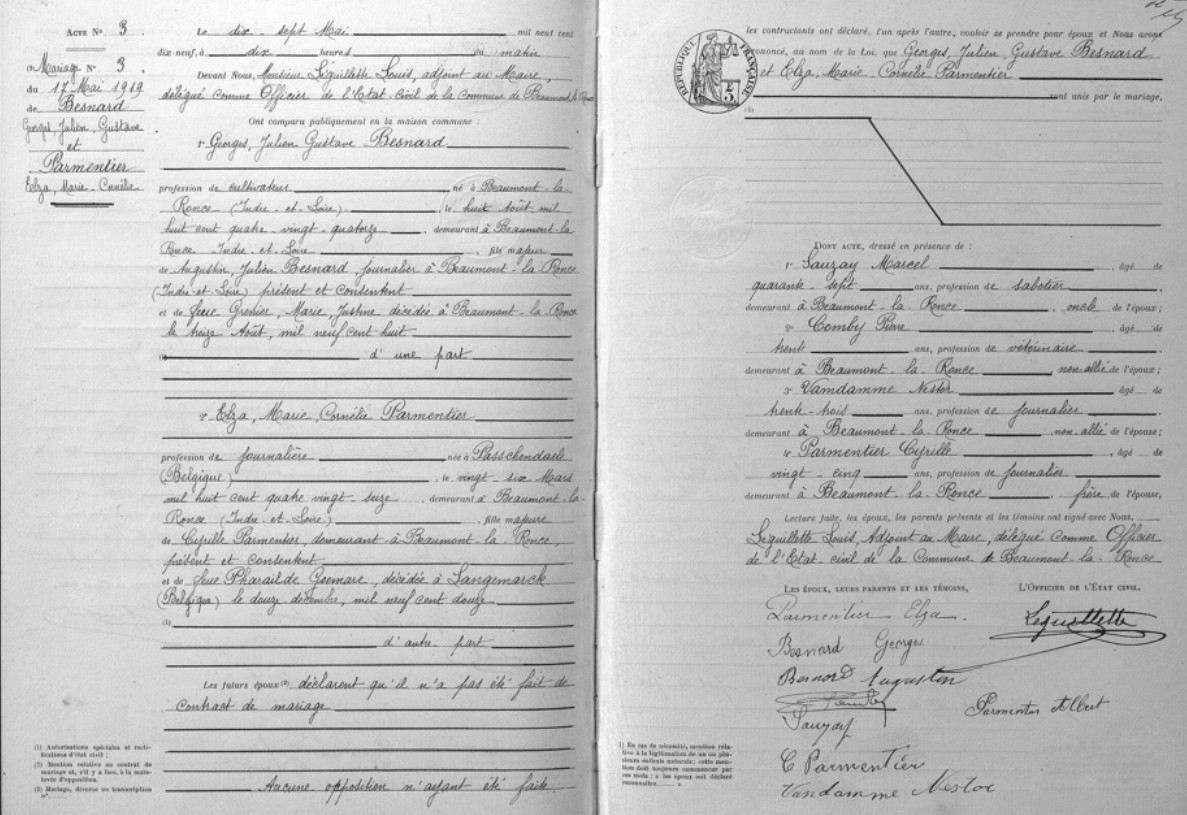 Acte N° 3.
Mariage N° 3.
du 17 Mai 1919
de Besnard
Georges, Julien, Gustave
et
Parmentier
Elza, Marie-Cornélie
Le dix-sept Mai mil neuf cent
dix-neuf, à dix heures du matin
Devant Nous, Monsieur Léguillette Louis, adjoint au Maire,
délégué comme Officier de l'Etat-civil de la Commune de Beaumont-la-Ronce
Ont comparu publiquement en la maison commune :
1° Georges, Julien Gustave Besnard
profession de cultivateur né à Beaumont-la-
Ronce (Indre-et-Loire) le huit Août mil
huit cent quatre-vingt-quatorze, demeurant à Beaumont-la
Ronce Indre-et-Loire, fils majeur
de Augustin, Julien Besnard, journalier à Beaumont-la Ronce
(Indre-et-Loire) présent et consentent
et de feue Grenier, Marie, Justine décédée à Beaumont-la Ronce
le treize Août, mil neuf cent huit
(1) d'une part
2° Elza, Marie, Cornélie Parmentier
profession de journalière née à Passchendaele
(Belgique), le vingt-six Mars
mil huit cent quatre vingt-seize, demeurant à Beaumont-la-
Ronce (Indre-et-Loire), fille majeure
de Cyrille Parmentier, demeurant à Beaumont-la-Ronce,
présent et consentent
et de feue Pharaïlde Goemare, décédée à Langemarck
(Belgique) le douze décembre, mil neuf cent douze
(1)
d'autre part
Les futurs époux (2) déclarent qu'il n'a pas été fait de
Contract de mariage
Aucune opposition n'ayant été faite
(1) Autorisations spéciales et rectifications d'état civil ;
(2) Mention relative au contrat de
mariage et, s'il y a lieu, à la mainlevée d'opposition.
(3) Mariage, divorce ou transcription
n°
les contractants ont déclaré, l'un après l'autre, vouloir se prendre pour époux et Nous avons
prononcé, au nom de la Loi, que Georges, Julien, Gustave Besnard
et Elza, Marie-Cornélie Parmentier
sont unis par le mariage.
RÉPUBLIQUE FRANÇAISE
(1)
Dont acte, dressé en présence de :
1° Sauzay Marcel, âgé de
quarante-sept ans, profession de sabotier,
demeurant à Beaumont-la-Ronce, oncle de l'époux ;
2° Comby Pierre, âgé de
trente ans, profession de vétérinaire
demeurant à Beaumont-la-Ronce, non allié de l'époux ;
3° Vamdamme Nestor âgé de
trente-trois ans, profession de journalier
demeurant à Beaumont-la-Ronce, non-allié de l'épouse ;
4° Parmentier Cyrille, âgé de
vingt-cinq ans, profession de journalier
demeurant à Beaumont-la-Ronce, frère de l'épouse.
Lecture faite, les époux, les parents présents et les témoins ont signé avec Nous,
Léguillette Louis, Adjoint au Maire, délégué comme Officier
de l'Etat-civil de la Commune de Beaumont-la-Ronce
Les époux, leurs parents et les témoins, L'Officier de l'état civil,
Parmentier Elza. Léguillette
Besnard Georges
Besnard Augustin
Comby
Parmentier Albert
Sauzay
C Parmentier
Vandamme Nestor
1) En cas de nécessité, mention relative
à la légitimation de un ou plusieurs
enfants naturels ; cette mention
doit toujours commencer par
ces mots : « les époux ont déclaré
reconnaître ».